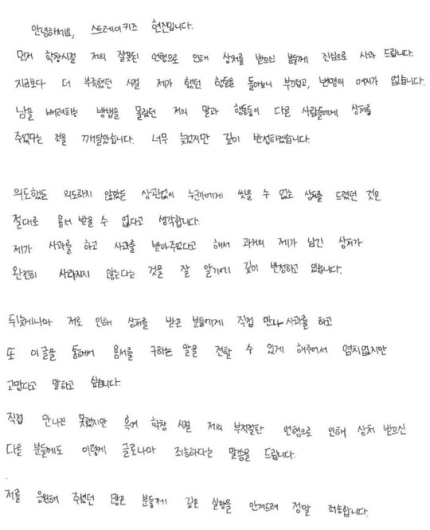 안녕하세요, 스트레이키즈 현진입니다.
먼저 학창시절 저의 잘못된 언행으로 인해 상처를 받으신 분들께 진심으로 사과 드립니다.
지금보다 더 부족했던 시절 제가 했던 행동을 돌아보니 부끄럽고, 변명의 여지가 없습니다.
남을 배려하는 방법을 몰랐던 저의 말과 행동들이 다른 사람들에게 상처를
주었다는 것을 깨달았습니다. 너무 늦었지만 깊이 반성하겠습니다.
의도했든 의도하지 않았든 상관없이 누군가에게 씻을 수 없는 상처를 드렸던 것은
절대로 용서 받을 수 없다고 생각합니다.
제가 사과를 하고 사과를 받아주었다고 해서 과거의 제가 남긴 상처가
완전히 사라지지 않는다는 것을 잘 알기에 깊이 반성하고 있습니다.
뒤늦게나마 저로 인해 상처를 받은 분들에게 직접 만나 사과를 하고
또 이 글을 통해서 용서를 구하는 말을 전할 수 있게 해주어서 염치없지만
고맙다고 말하고 싶습니다.
직접 만나진 못했지만 혹여 학창 시절 저의 부적절한 언행으로 인해 상처 받으신
다른 분들에게도 이렇게 글로나마 죄송하다는 말씀을 드립니다.
저를 응원해 주셨던 많은 분들께 깊은 실망을 안겨드려 정말 죄송합니다.